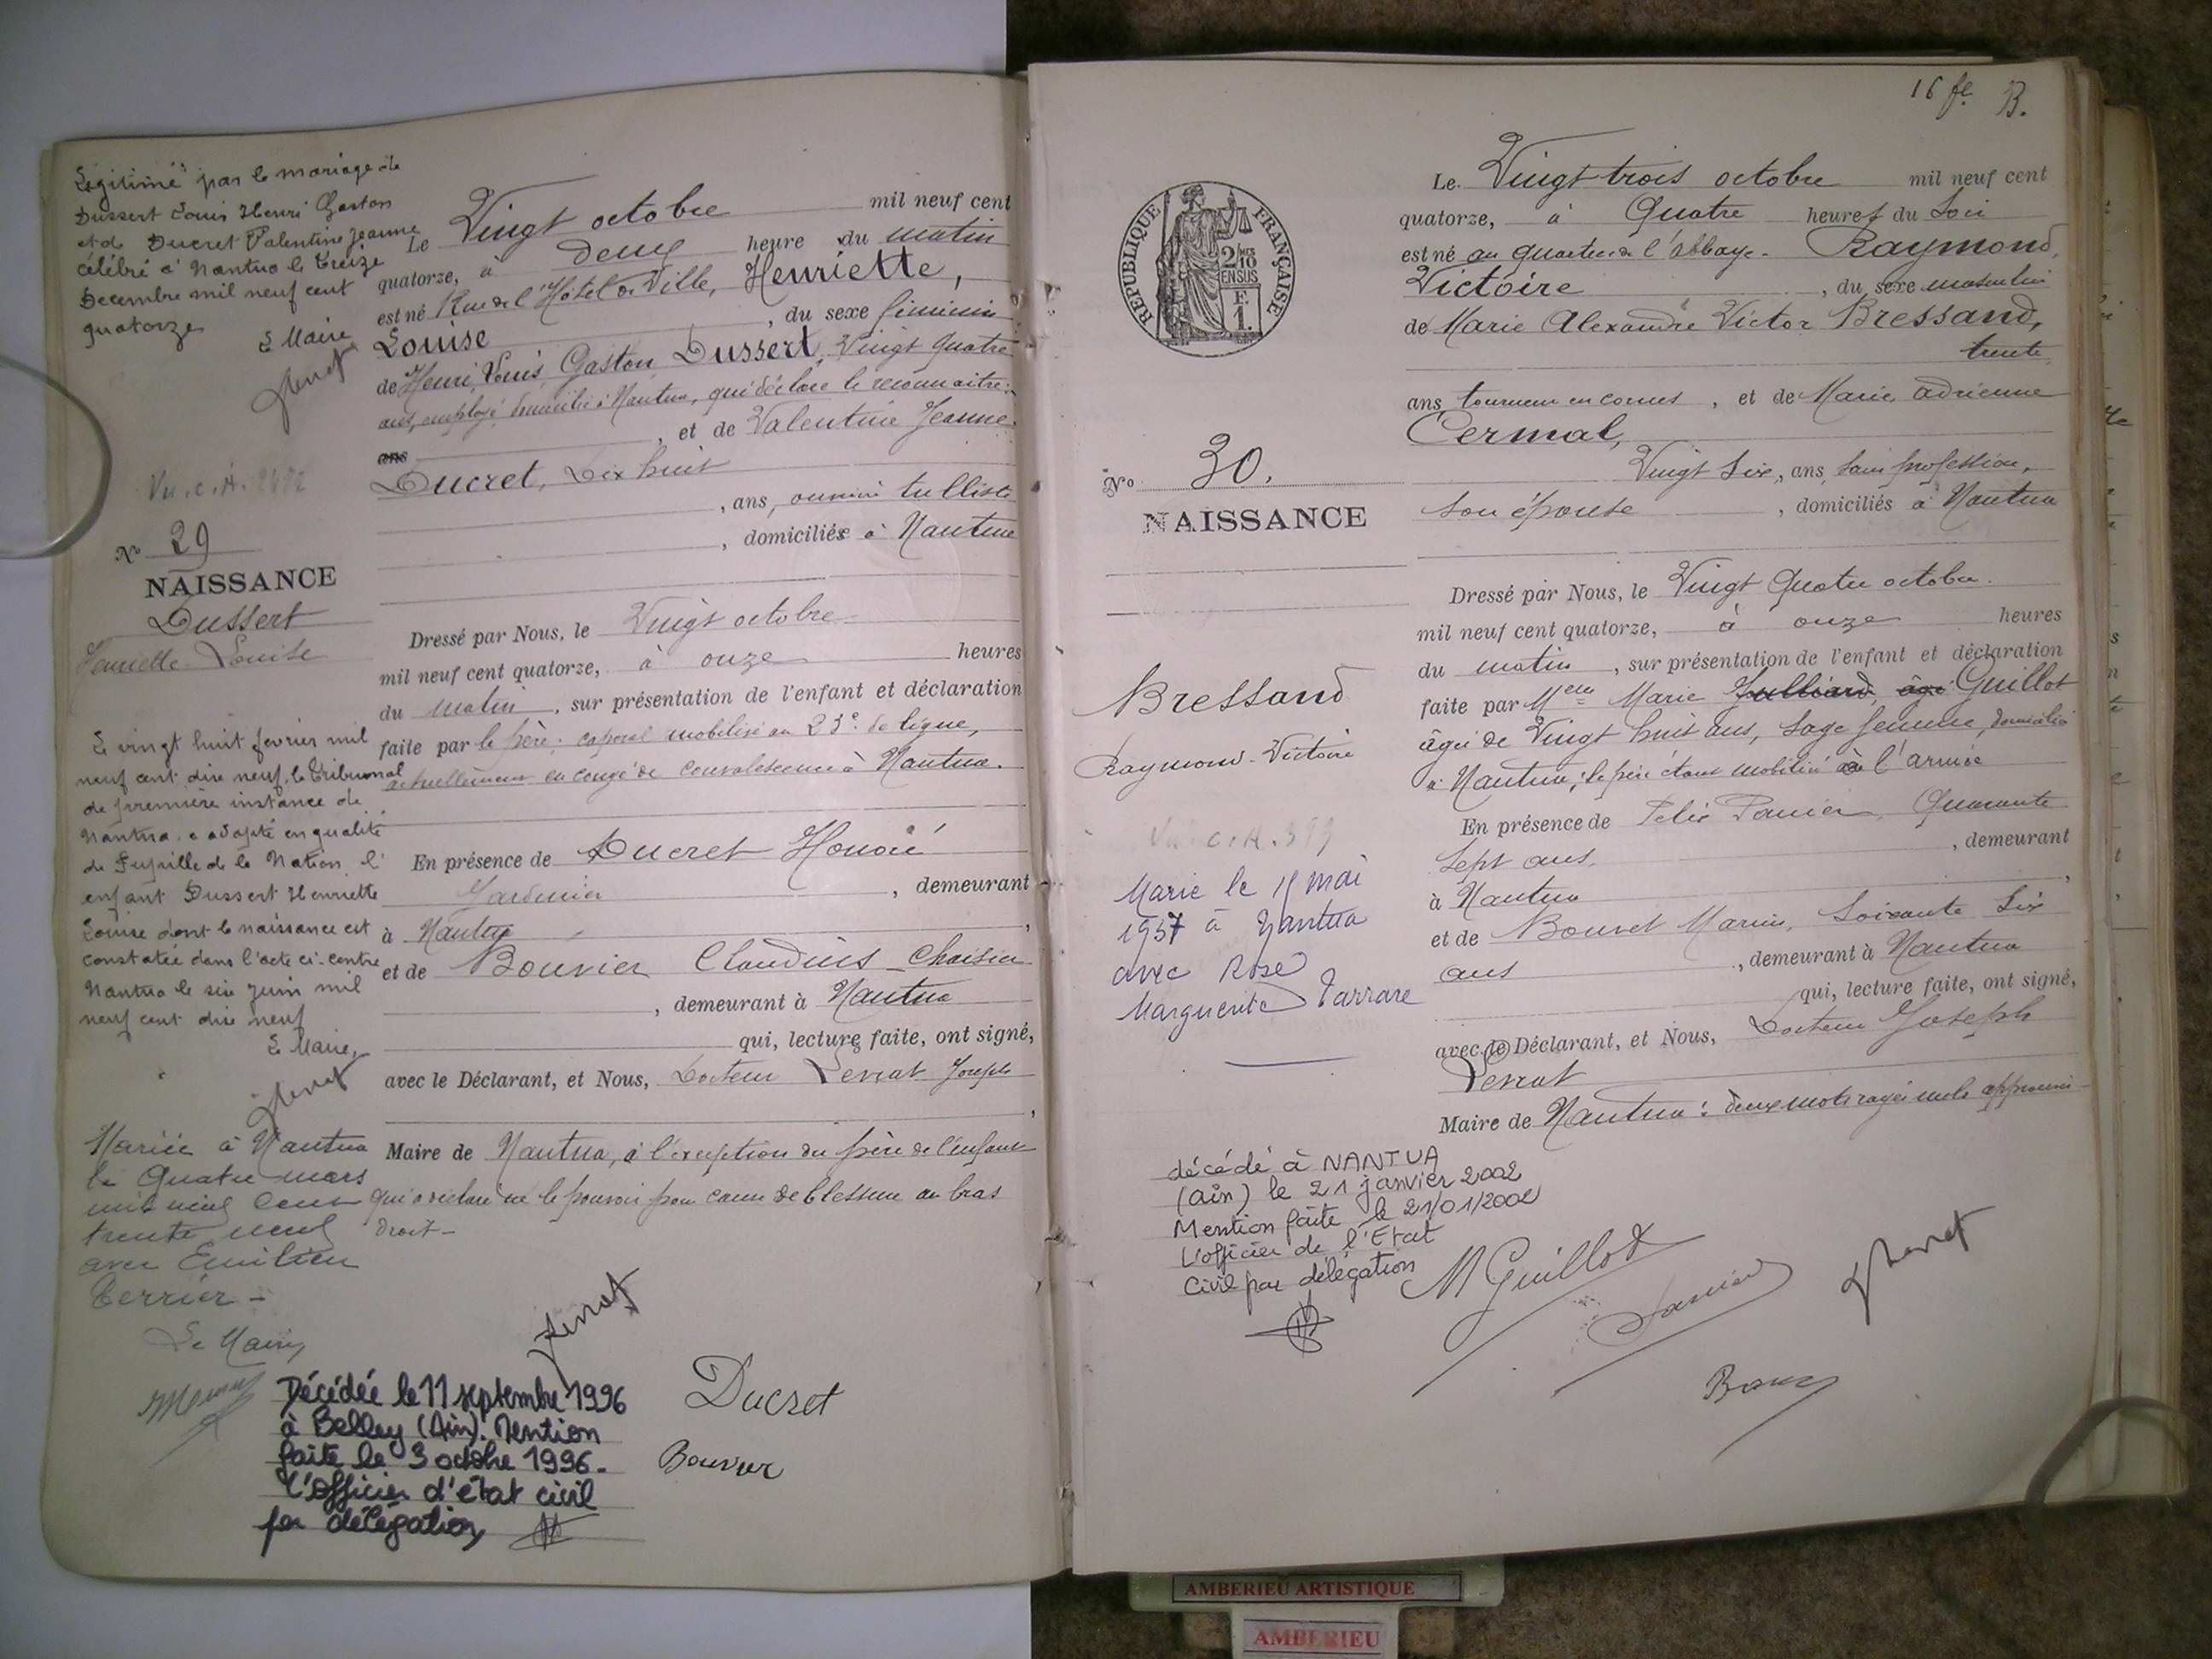 Légitimée par le mariage de
Dussert Louis Henri Gaston
et de Ducret Valentine Jeanne
célébré à Nantua le treize
Decembre mil neuf cent
quatorze
Le Maire
Vu. c. A.
No 29
NAISSANCE
Dussert
Henriette Louise
Le vingt huit février mil
neuf cent dix neuf, le Tribunal
de première instance de
Nantua a adopté en qualité
de Pupille de la Nation l'
enfant Dussert Henriette
Louise dont la naissance est
constatée dans l'acte ci-contre
Nantua le six juin mil
neuf cent dix neuf
Le Maire,
Mariée à Nantua
le Quatre mars
mil neuf cent
trente neuf
avec Emilien
Terrier -
Le Maire
Le Vingt octobre mil neuf cent
quatorze, à deux heure du matin
est né Rue de l'Hôtel de Ville, Henriette,
Louise, du sexe féminin
de Henri, Louis, Gaston Dussert, Vingt quatre
ans, employé, domicilié à Nantua, qui déclare le reconnaitre;
ans, et de Valentine Jeanne
Ducret, Dix huit
, ans, ouvrière tulliste
, domiciliés à Nantua
Dressé par Nous, le Vingt octobre
mil neuf cent quatorze, à onze heures
du matin, sur présentation de l'enfant et déclaration
faite par le père; caporal mobilisé au 23e de ligne,
actuellement en congé de convalescence à Nantua.
En présence de Ducret Honoré
Jardinier, demeurant
à Nantua,
et de Bouvier Claudius - Chaisier
, demeurant à Nantua
qui, lecture faite, ont signé,
avec le Déclarant, et Nous, Docteur Levrat Joseph
,
Maire de Nantua, à l'exception du père de l'enfant
qui a déclaré ne le pouvoir pour cause de blessure au bras
droit -
Levrat
Ducret
Bouvier
Décédée le 11 septembre 1996
à Belley (Ain). Mention
faite le 3 octobre 1996.
L'officier d'état civil
par délégation
16 fe B.
REPUBLIQUE FRANÇAISE
2/10 EN SUS
F. 1.
No 30.
NAISSANCE
Bressand
Raymond-Victoire
Vu. c. A. 399
Marié le 11 mai
1957 à Nantua
avec Rose
Marguerite Tarrare
Le Vingt trois octobre mil neuf cent
quatorze, à Quatre heures du Soir
est né au quartier de l'Abbaye - Raymond,
Victoire, du sexe masculin
de Marie Alexandre Victor Bressand,
trente
ans tourneur en cornes, et de Marie Adrienne
Cermal,
Vingt Six, ans, sans profession,
son épouse, domiciliés à Nantua
Dressé par Nous, le Vingt Quatre octobre.
mil neuf cent quatorze, à onze heures
du matin, sur présentation de l'enfant et déclaration
faite par Melle Marie Julliard, âgé Guillot
âgée de Vingt huit ans, Sage femme, domiciliée
à Nantua; le père étant mobilisé à l'armée
En présence de Félix Panier, Quarante
Sept ans, demeurant
à Nantua,
et de Bouvet Marius, Soixante Six
ans, demeurant à Nantua
qui, lecture faite, ont signé,
avec le Déclarant, et Nous, Docteur Joseph
Levrat
Maire de Nantua: deux mots rayés nuls approuvés
décédé à NANTUA
(Ain) le 21 janvier 2002
Mention faite le 21/01/2002
L'officier de l'Etat
Civil par délégation
M Guillot
Panier
AMBERIEU ARTISTIQUE
AMBERIEU